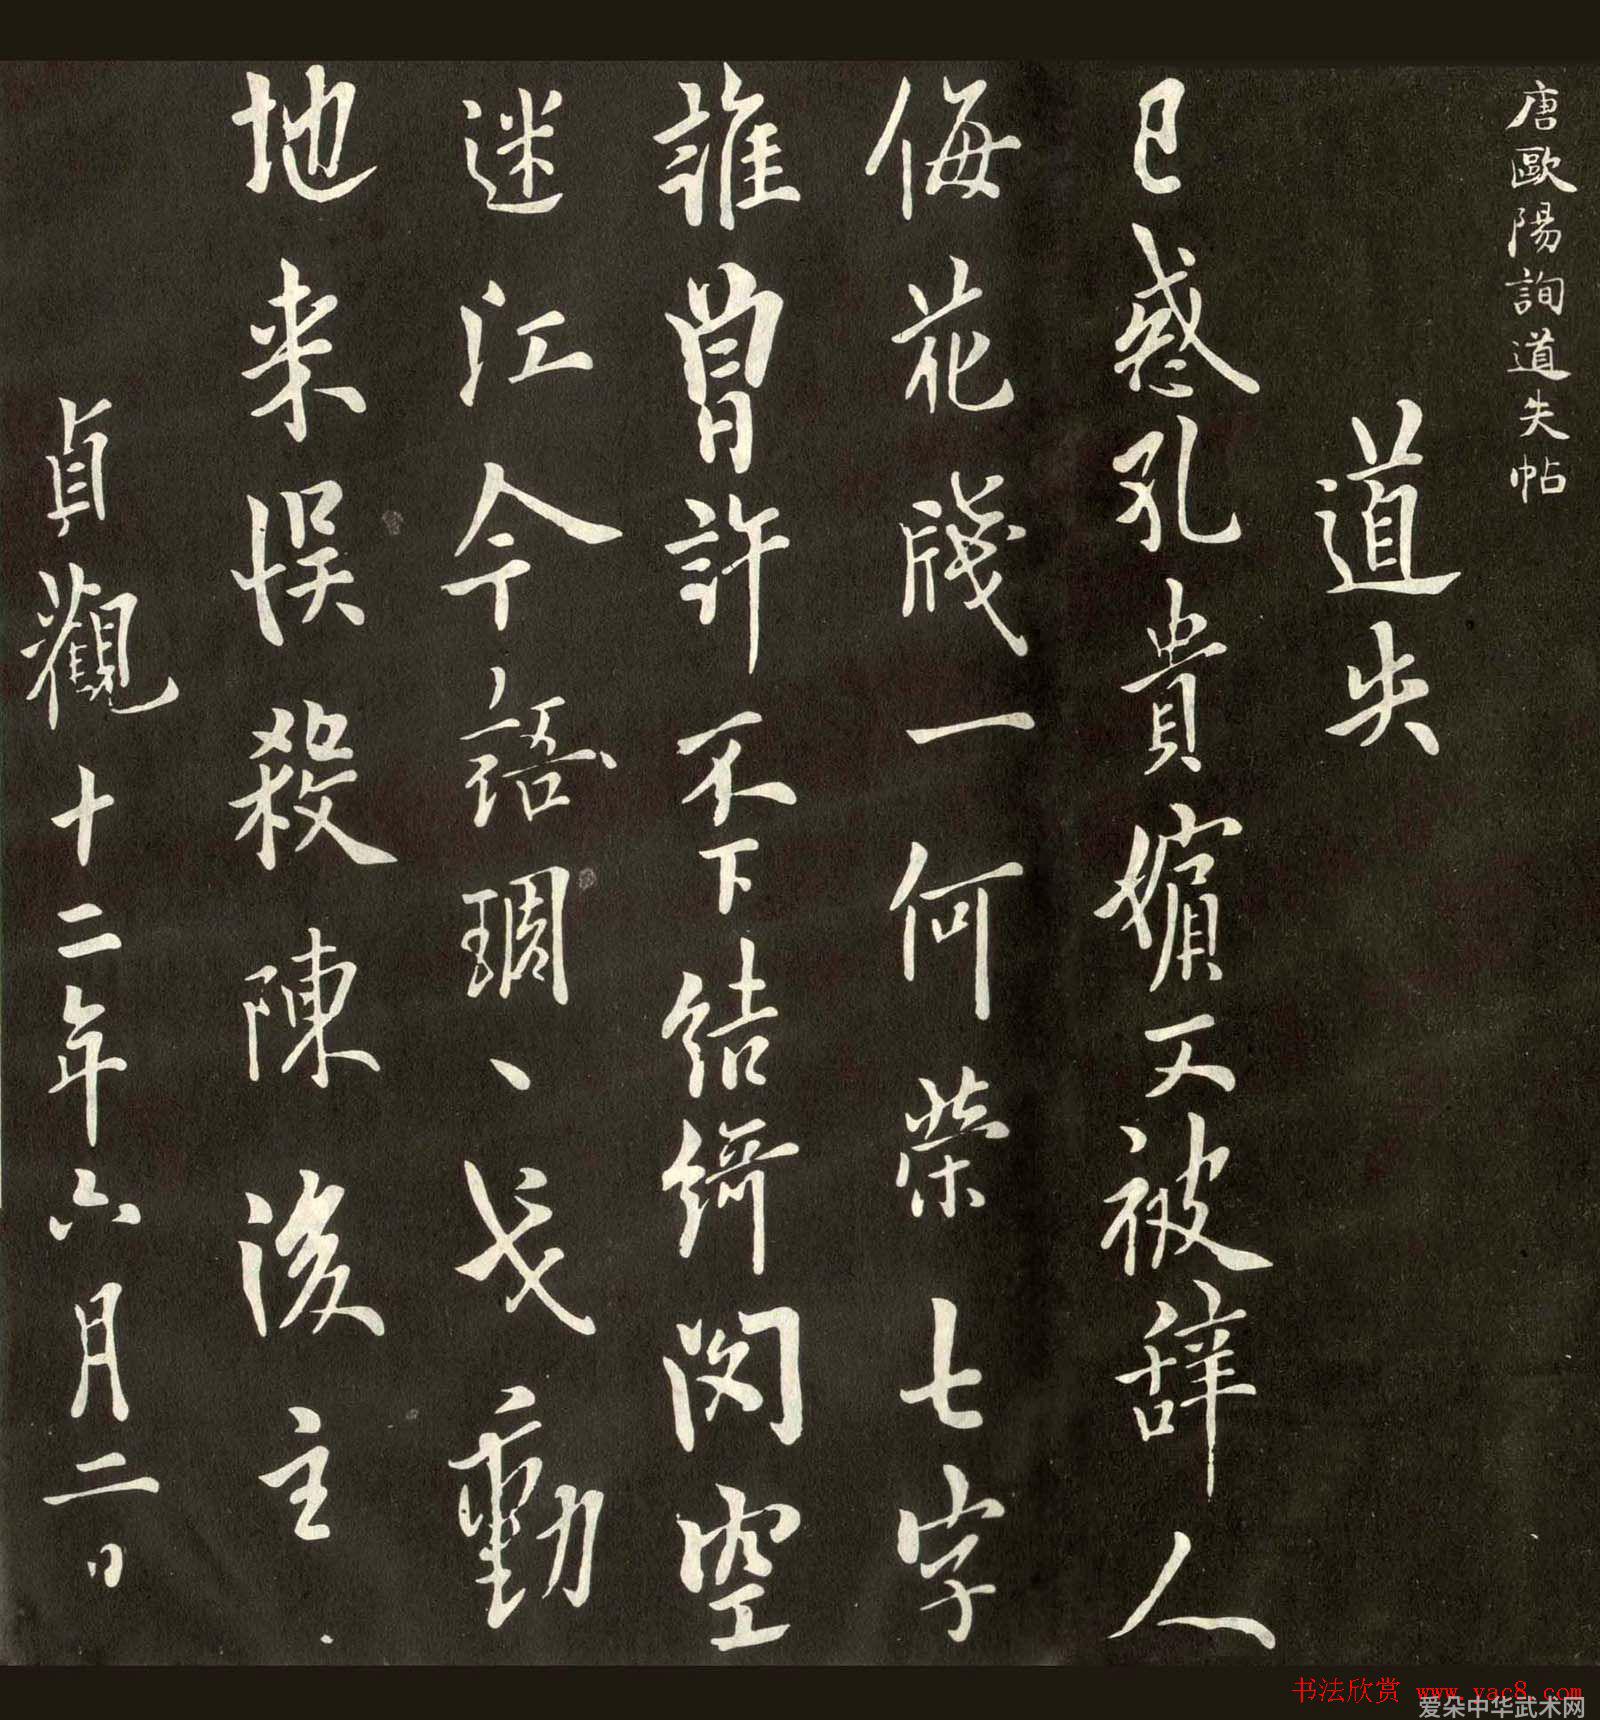 唐歐陽詢道失帖
道失
已惑孔貴嬪又被辞人
侮花牋一何荣七字
誰曾許不下结綺阁空
迷江令語琱丶戈動
地来悮殺陳後主
貞觀十二年六月二日
书法欣赏 www.yac8.com
爱朵中华武术网